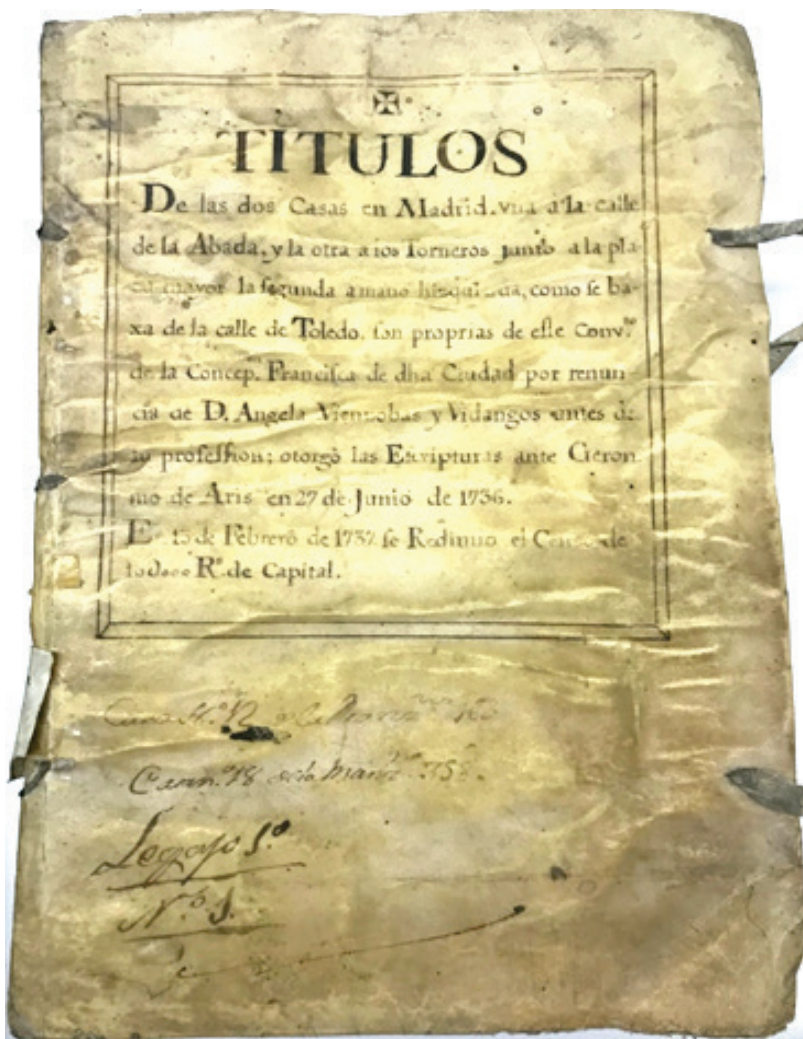 ✠
TITULOS
De las dos Casas en Madrid. vna â la calle
de la Abada, y la otra a los Torneros junto a la pla
za mayor la segunda a mano hizquierda, como se ba-
xa de la calle de Toledo. son proprias de este Conv.to
de la Concep.on Francisca de dha Ciudad por renun-
cia de D. Angela y Vidangos antes de
su profession; otorgò las Escripturas ante Geron
mo de Aris en 27 de Junio de 1736.
En 15 de Febrero de 1737 se Redimio el Censo de
R.s de Capital.
Casa N.o 12
Casa n.o 18 de la Manz.a 158.
Legajo 1.o
N.o 1.